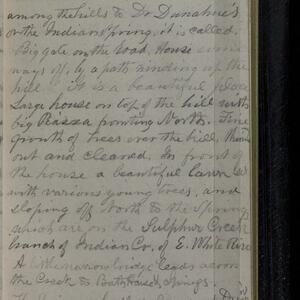 among the hills to Dr Dunahue's
on the Indian Spring, it is called.
Big gate on the road, House some
ways off, by a path winding up the
hill. It is a beautiful place
Large house on top of the hill with
big Piazza fronting North. Fine
growth of trees over the hill, thinned
out and cleared. In front of
the house a beautiful Lawn set
with various young trees, and
sloping off North to the Springs
which are on the Sulphur Creek
branch of Indian Co. of E. White River
A little narrow bridge leads across
the Creek to Bath house, Springs.